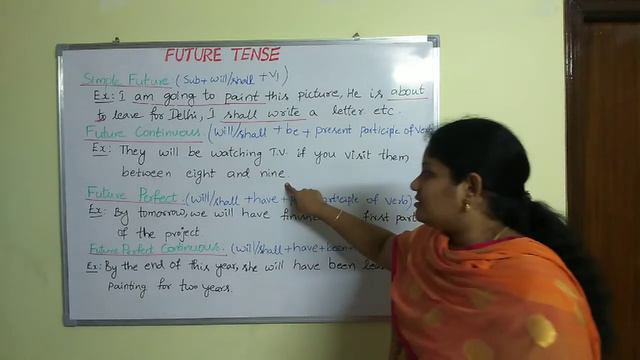 FUTURE TENSE
Simple Future (Sub+ will/shall + V1)
Ex: I am going to paint this picture, He is about
to leave for Delhi, I shall write a letter etc.
Future Continuous (will/shall + be + present participle of verb)
Ex: They will be watching T.V. if you visit them
between eight and nine.
Future Perfect (will/shall +have + participle of verb)
Ex: By tomorrow, we will have first part
of the project
Future Perfect Continuous (will/shall+have+been+
Ex: By the end of this year, she will have been
Painting for two years.